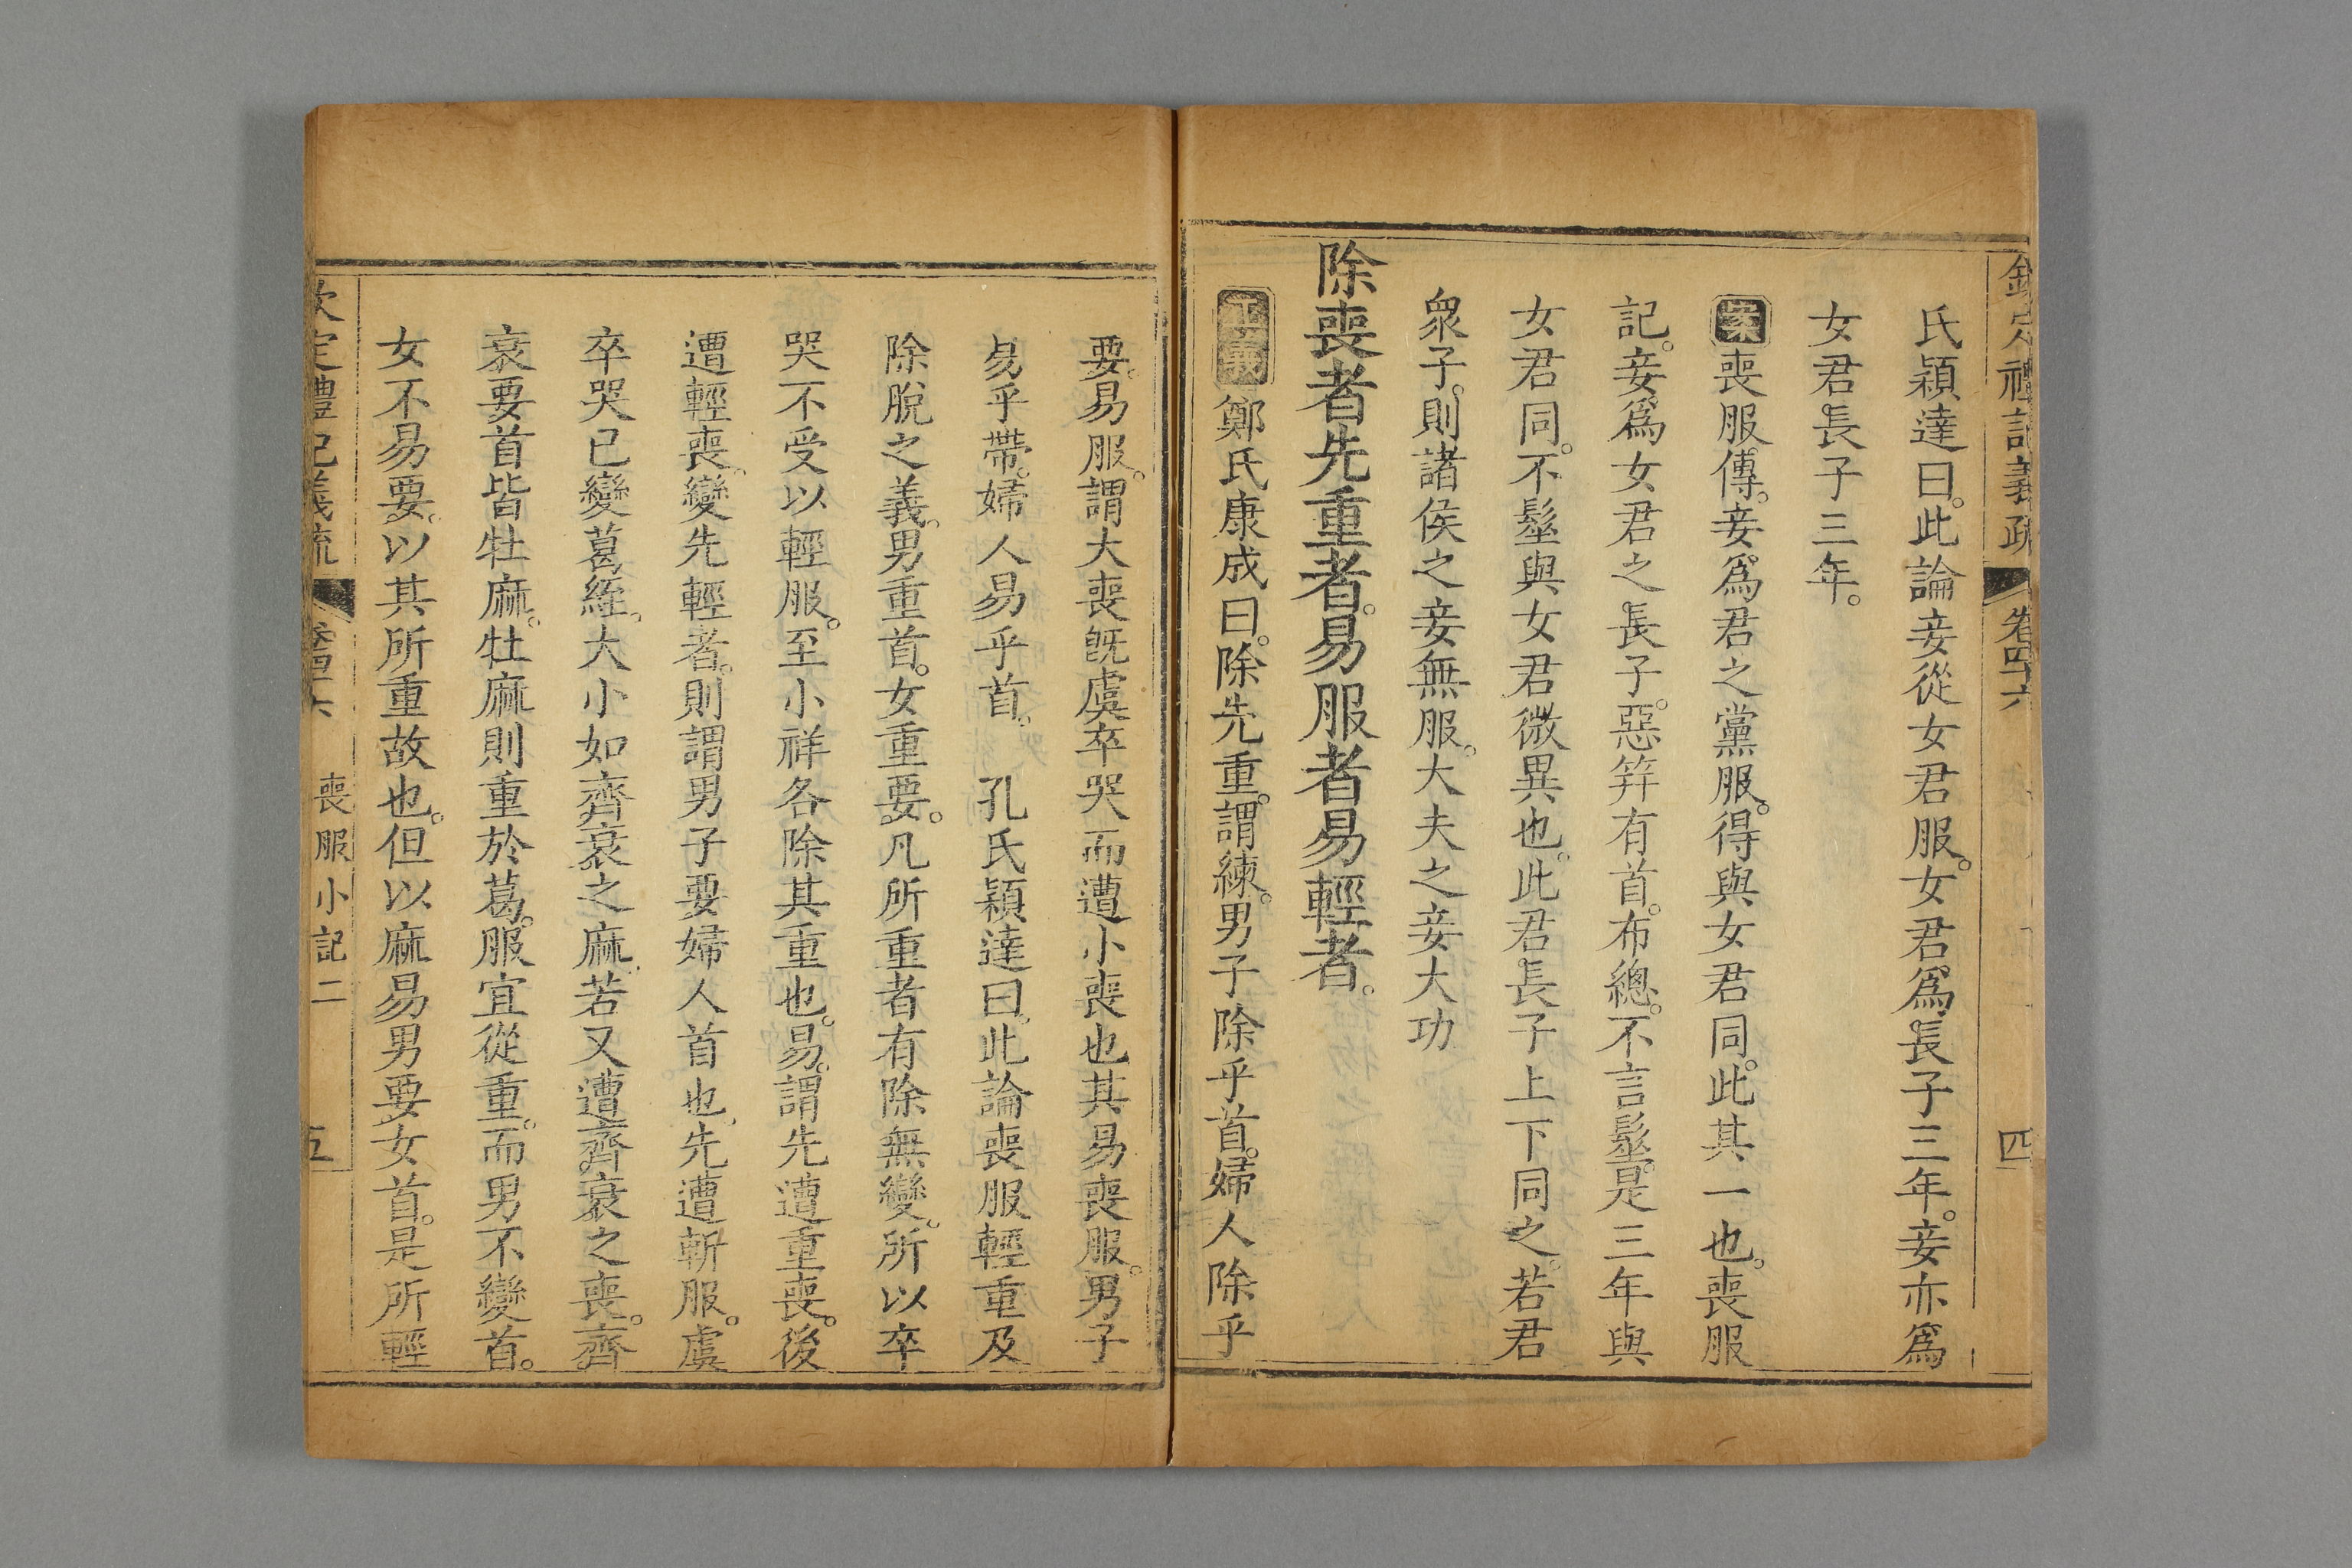 欽定禮記義疏 卷四十六 四
氏穎達曰。此論妾從女君服。女君爲長子三年。妾亦爲
女君長子三年。
案喪服傳。妾爲君之黨服。得與女君同。此其一也。喪服
記。妾爲女君之長子。惡笄有首。布總。不言髽。是三年與
女君同。不髽與女君微異也。此君長子上下同之。若君
衆子。則諸侯之妾無服。大夫之妾大功
除喪者先重者。易服者易輕者。
正義鄭氏康成曰。除先重。謂練。男子除乎首。婦人除乎
要。易服。謂大喪旣虞卒哭而遭小喪也其易喪服。男子
易乎帶。婦人易乎首。 孔氏穎達曰。此論喪服輕重及
除脫之義。男重首。女重要。凡所重者有除無變。所以卒
哭不受以輕服。至小祥各除其重也。易。謂先遭重喪。後
遭輕喪。變先輕者。則謂男子要婦人首也。先遭斬服。虞
卒哭已變葛絰。大小如齊衰之麻。若又遭齊衰之喪。齊
衰要首皆牡麻。牡麻則重於葛。服宜從重。而男不變首。
女不易要。以其所重故也。但以麻易男要女首。是所輕
欽定禮記義疏 卷四十六 喪服小記二 五